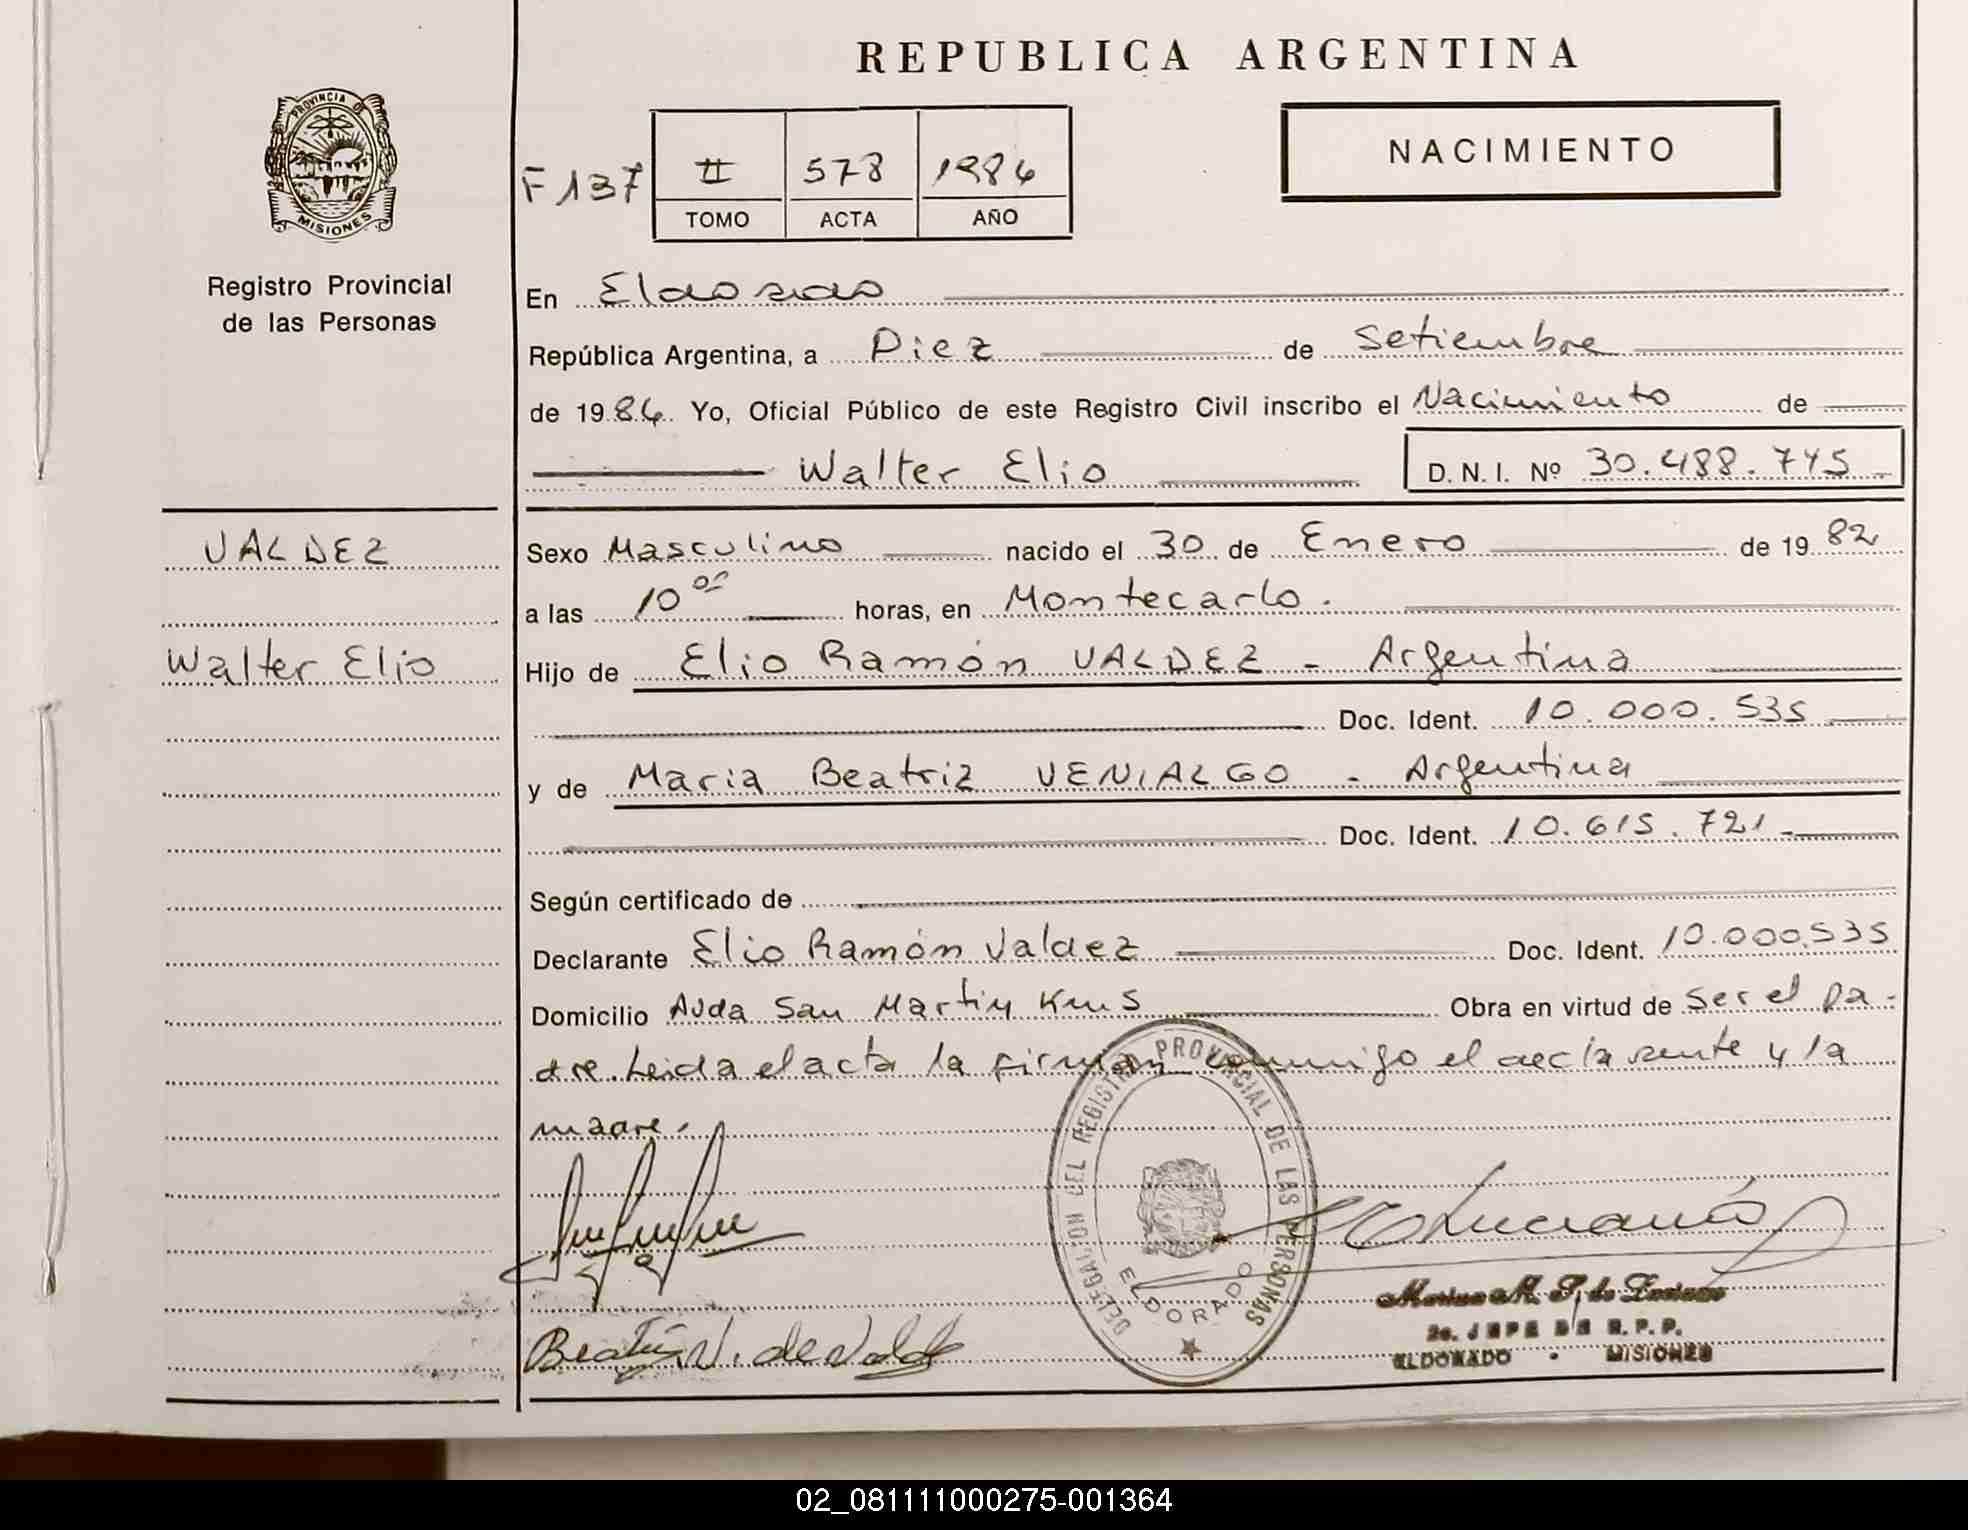 REPUBLICA ARGENTINA
PROVINCIA DE
MISIONES
Registro Provincial
de las Personas
F 137
II 578 1984
TOMO ACTA AÑO
NACIMIENTO
En Eldorado
República Argentina, a Diez de Setiembre
de 1984. Yo, Oficial Público de este Registro Civil inscribo el Nacimiento de
Walter Elio
D. N. I. Nº 30.488.745
VALDEZ
Walter Elio
Sexo Masculino nacido el 30 de Enero de 1982
a las 10 00 horas, en Montecarlo.
Hijo de Elio Ramón VALDEZ - Argentina
Doc. Ident. 10.000.535
y de Maria Beatriz VENIALGO - Argentina
Doc. Ident. 10.615.721
Según certificado de
Declarante Elio Ramón Valdez Doc. Ident. 10.000.535
Domicilio Avda San Martin Km 5 Obra en virtud de ser el pa-
dre. Leida el acta la firman conmigo el declarante y la
madre.
DELEGACION DEL REGISTRO PROVINCIAL DE LAS PERSONAS
ELDORADO
Beatriz V. de Valdez
Luciano
M. de Luciano
2a. JEFE DE R. P. P.
ELDORADO - MISIONES
02_081111000275-001364